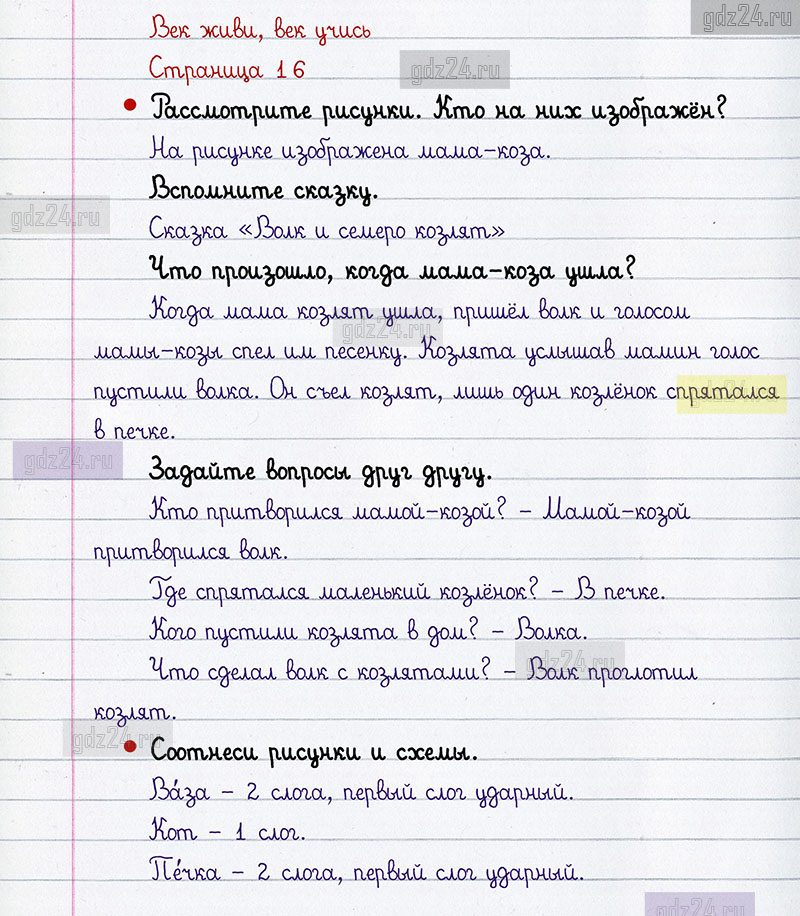 gdz24.ru
Век живи, век учись
Страница 16
gdz24.ru
Рассмотрите рисунки. Кто на них изображён?
На рисунке изображена мама-коза.
Вспомните сказку.
gdz24.ru
Сказка «Волк и семеро козлят»
Что произошло, когда мама-коза ушла?
Когда мама козлят ушла, пришёл волк и голосом
gdz24.ru
мамы-козы спел им песенку. Козлята услышав мамин голос
пустили волка. Он съел козлят, лишь один козлёнок спрятался
gdz24.ru
в печке.
gdz24.ru
Задайте вопросы друг другу.
Кто притворился мамой-козой? – Мамой-козой
притворился волк.
Где спрятался маленький козлёнок? – В печке.
Кого пустили козлята в дом? – Волка.
gdz24.ru
Что сделал волк с козлятами? – Волк проглотил
козлят.
gdz24.ru
Соотнеси рисунки и схемы.
Ва́за – 2 слога, первый слог ударный.
Кот – 1 слог.
Пе́чка – 2 слога, первый слог ударный.
gdz24.ru